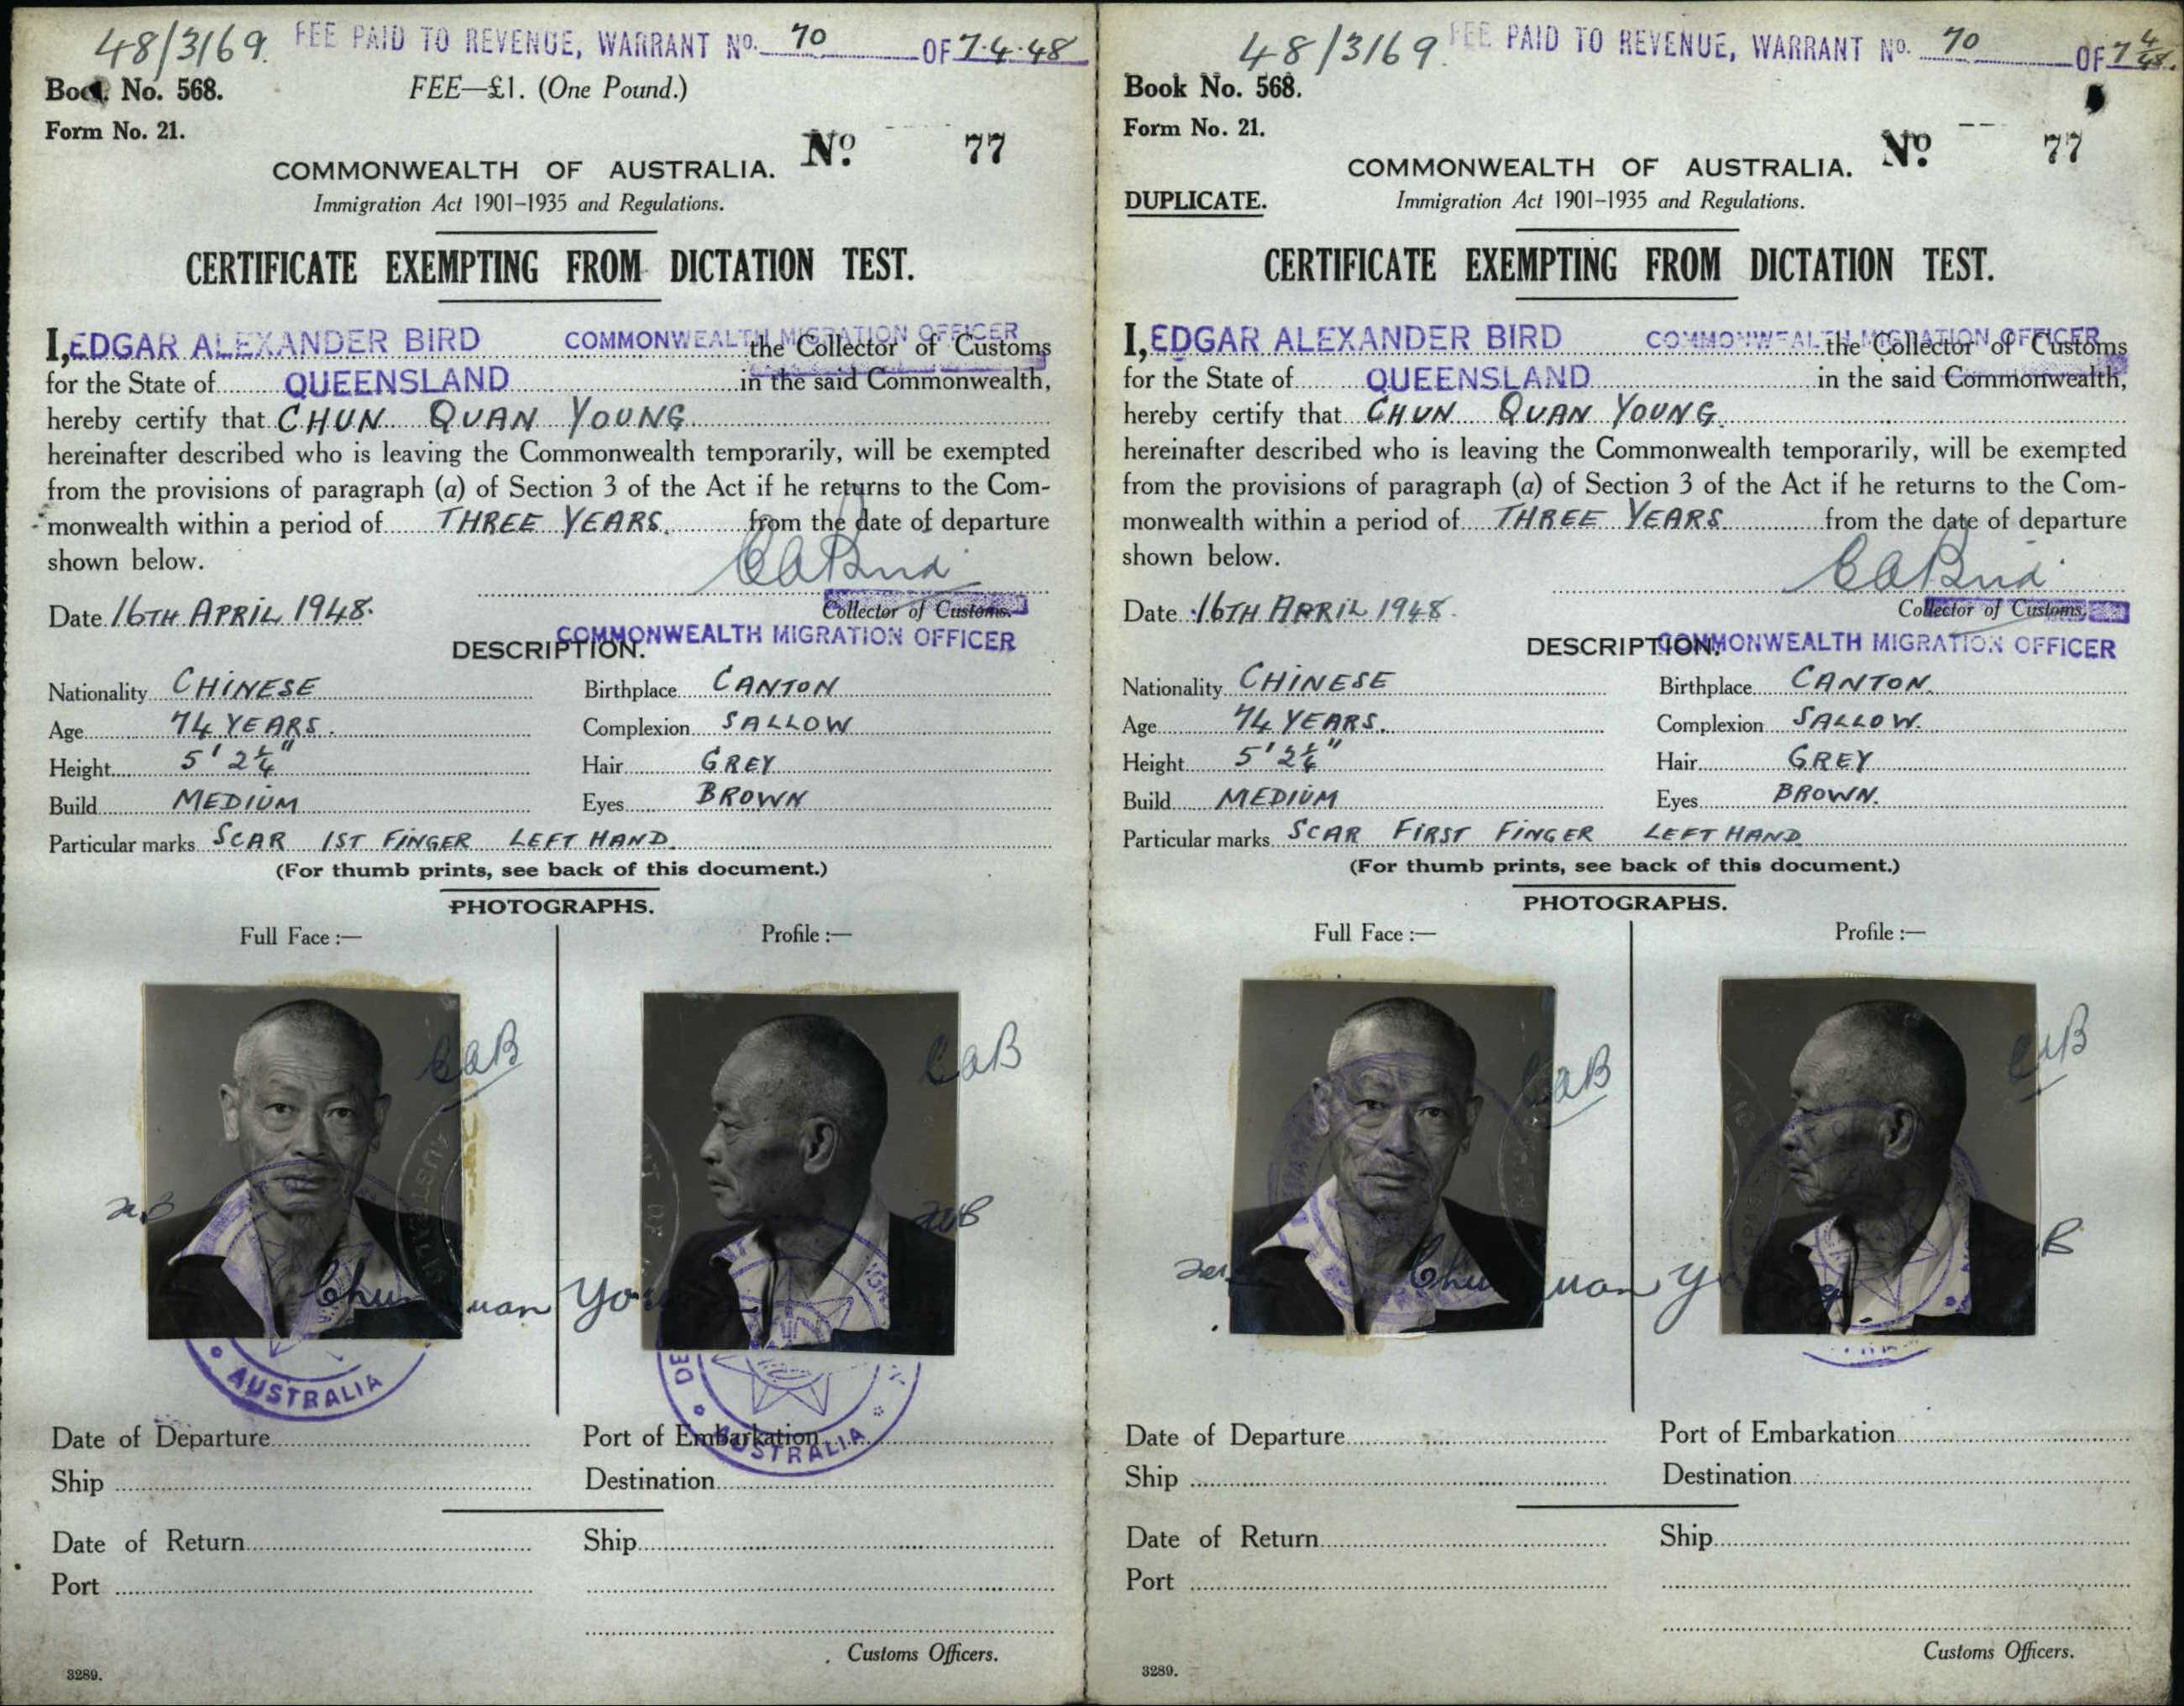 48/3169. FEE PAID TO REVENUE, WARRANT No. 70 OF 7.4.48
Book No. 568. FEE—£1. (One Pound.)
Form No. 21.
No. 77
COMMONWEALTH OF AUSTRALIA.
Immigration Act 1901–1935 and Regulations.
CERTIFICATE EXEMPTING FROM DICTATION TEST.
I, EDGAR ALEXANDER BIRD COMMONWEALTH MIGRATION OFFICER the Collector of Customs
for the State of QUEENSLAND in the said Commonwealth,
hereby certify that CHUN QUAN YOUNG
hereinafter described who is leaving the Commonwealth temporarily, will be exempted
from the provisions of paragraph (a) of Section 3 of the Act if he returns to the Com-
monwealth within a period of THREE YEARS. from the date of departure
shown below.
EABird
Date 16TH APRIL 1948. Collector of Customs.
COMMONWEALTH MIGRATION OFFICER
DESCRIPTION.
Nationality CHINESE Birthplace CANTON
Age 74 YEARS. Complexion SALLOW
Height 5' 2¼" Hair GREY
Build MEDIUM Eyes BROWN
Particular marks SCAR 1ST FINGER LEFT HAND.
(For thumb prints, see back of this document.)
PHOTOGRAPHS.
Full Face :— Profile :—
EAB EAB
AUSTRALIA
Chun Quan Young
AUSTRALIA
Date of Departure Port of Embarkation
AUSTRALIA
Ship Destination
Date of Return Ship
Port
Customs Officers.
3289.
48/3169. FEE PAID TO REVENUE, WARRANT No. 70 OF 7 4/48.
Book No. 568.
Form No. 21.
No. 77
COMMONWEALTH OF AUSTRALIA.
DUPLICATE. Immigration Act 1901–1935 and Regulations.
CERTIFICATE EXEMPTING FROM DICTATION TEST.
I, EDGAR ALEXANDER BIRD COMMONWEALTH MIGRATION OFFICER the Collector of Customs
for the State of QUEENSLAND in the said Commonwealth,
hereby certify that CHUN QUAN YOUNG.
hereinafter described who is leaving the Commonwealth temporarily, will be exempted
from the provisions of paragraph (a) of Section 3 of the Act if he returns to the Com-
monwealth within a period of THREE YEARS from the date of departure
shown below.
EABird
Date 16TH APRIL 1948. Collector of Customs.
COMMONWEALTH MIGRATION OFFICER
DESCRIPTION.
Nationality CHINESE Birthplace CANTON.
Age 74 YEARS. Complexion SALLOW.
Height 5' 2¼" Hair GREY
Build MEDIUM Eyes BROWN.
Particular marks SCAR FIRST FINGER LEFT HAND
(For thumb prints, see back of this document.)
PHOTOGRAPHS.
Full Face :— Profile :—
EAB EAB
Chun Quan Young
Date of Departure Port of Embarkation
Ship Destination
Date of Return Ship
Port
Customs Officers.
3289.